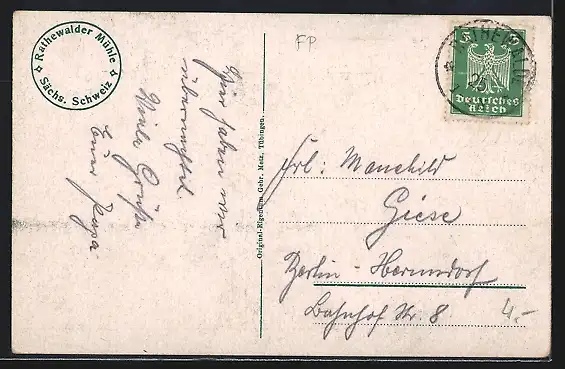 Rathewalder Mühle
Sächs. Schweiz
FP
Hier haben wir
übernachtet.
Viele Grüße
Euer
Original-Eigentum Gebr. Metz, Tübingen.
RATHEWALDE
5
Deutsches
Reich
Frl: Manchild
Giese
Berlin-Hermsdorf
Bahnhof Str. 8
4.-